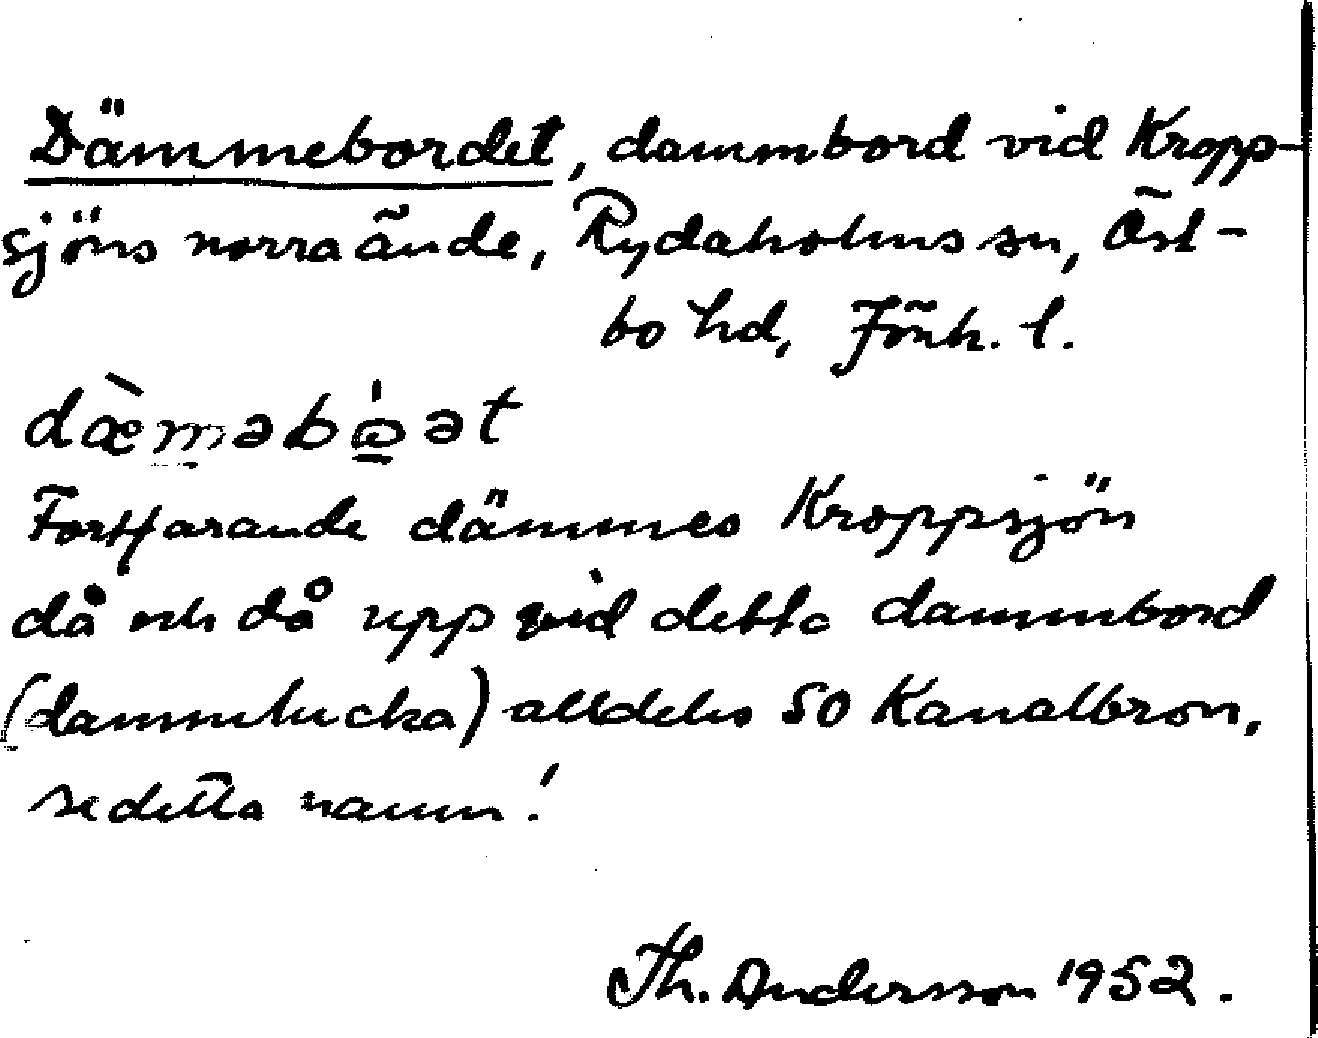 Dämmebordet, dammbord vid Kropp-
sjöns norra ände, Rydaholms sn, Öst-
bo hd, Jönk. l.
dæ̀m̠əbɷ̠̍ət
Fortfarande dämmes Kroppsjön
då och då upp vid detta dammbord
(dammlucka) alldeles SO Kanalbron,
se detta namn!
Th. Andersson 1952.